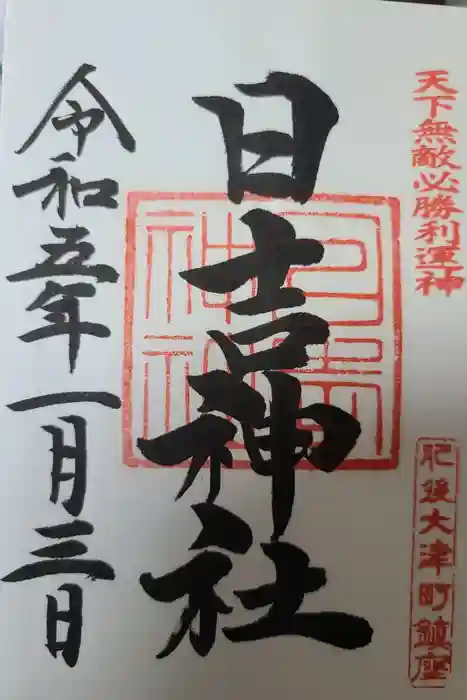 天下無敵必勝利運神
肥後大津町鎮座
日吉神社
日吉神社
令和五年一月三日